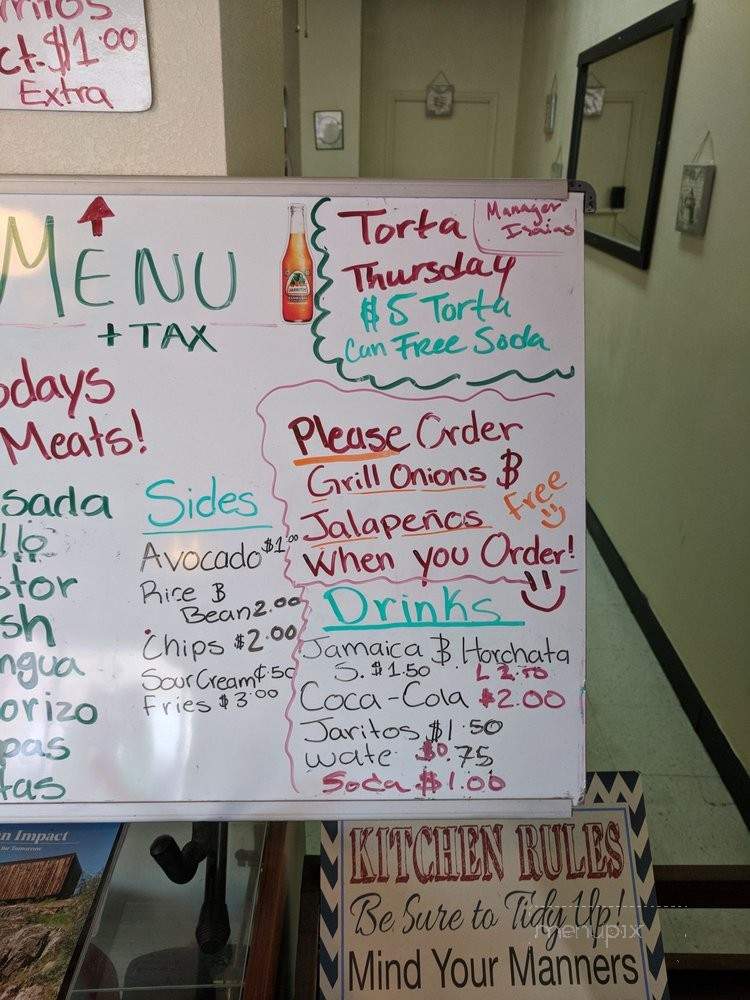 rritos
ct. $1.00
Extra
MENU
+ TAX
JARRITOS
Torta
Thursday
$5 Torta
Can Free Soda
Manager
Isaias
odays
Meats!
sada
llo
stor
sh
ngua
orizo
pas
tas
Sides
Avocado $1.00
Rice &
Bean 2.00
Chips $2.00
Sour Cream ¢.50
Fries $3.00
Please Order
Grill Onions &
Jalapeños
Free
When you Order!
Drinks
Jamaica & Horchata
S. $1.50 L 2.50
Coca-Cola $2.00
Jaritos $1.50
wate $0.75
Soda $1.00
n Impact
for Tomorrow
KITCHEN RULES
Be Sure to Tidy Up!
Mind Your Manners
menupix